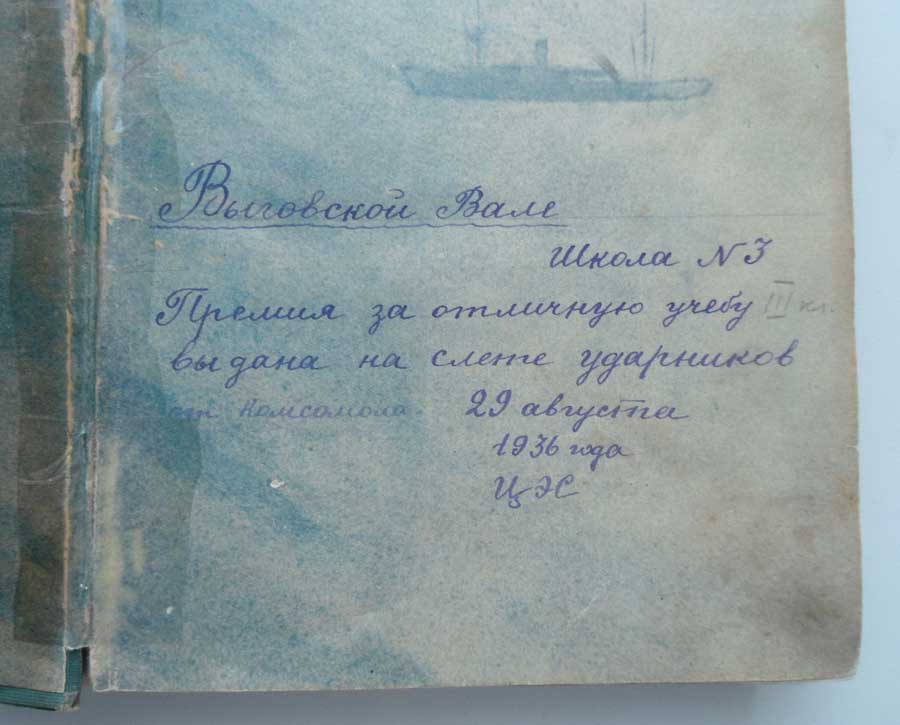 Выговской Вале
Школа N 3
Премия за отличную учебу III кл.
выдана на слете ударников
от Комсомола. 29 августа
1936 года
ЦЭС